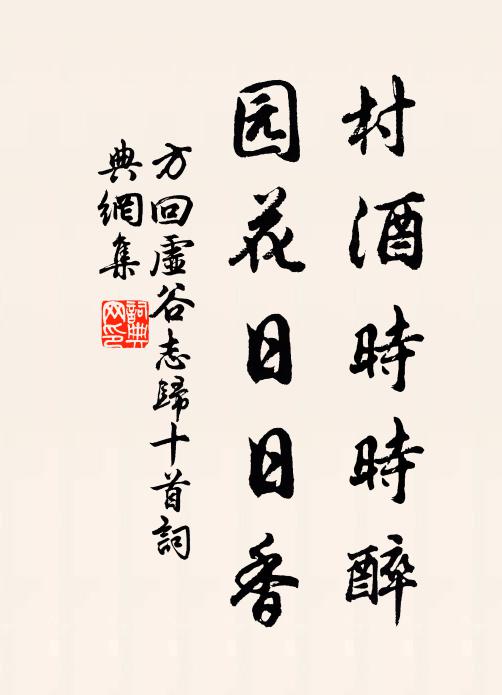 村酒時時醉
园花日日香
方回虛谷志歸十首詞
典網集
詞典
网印